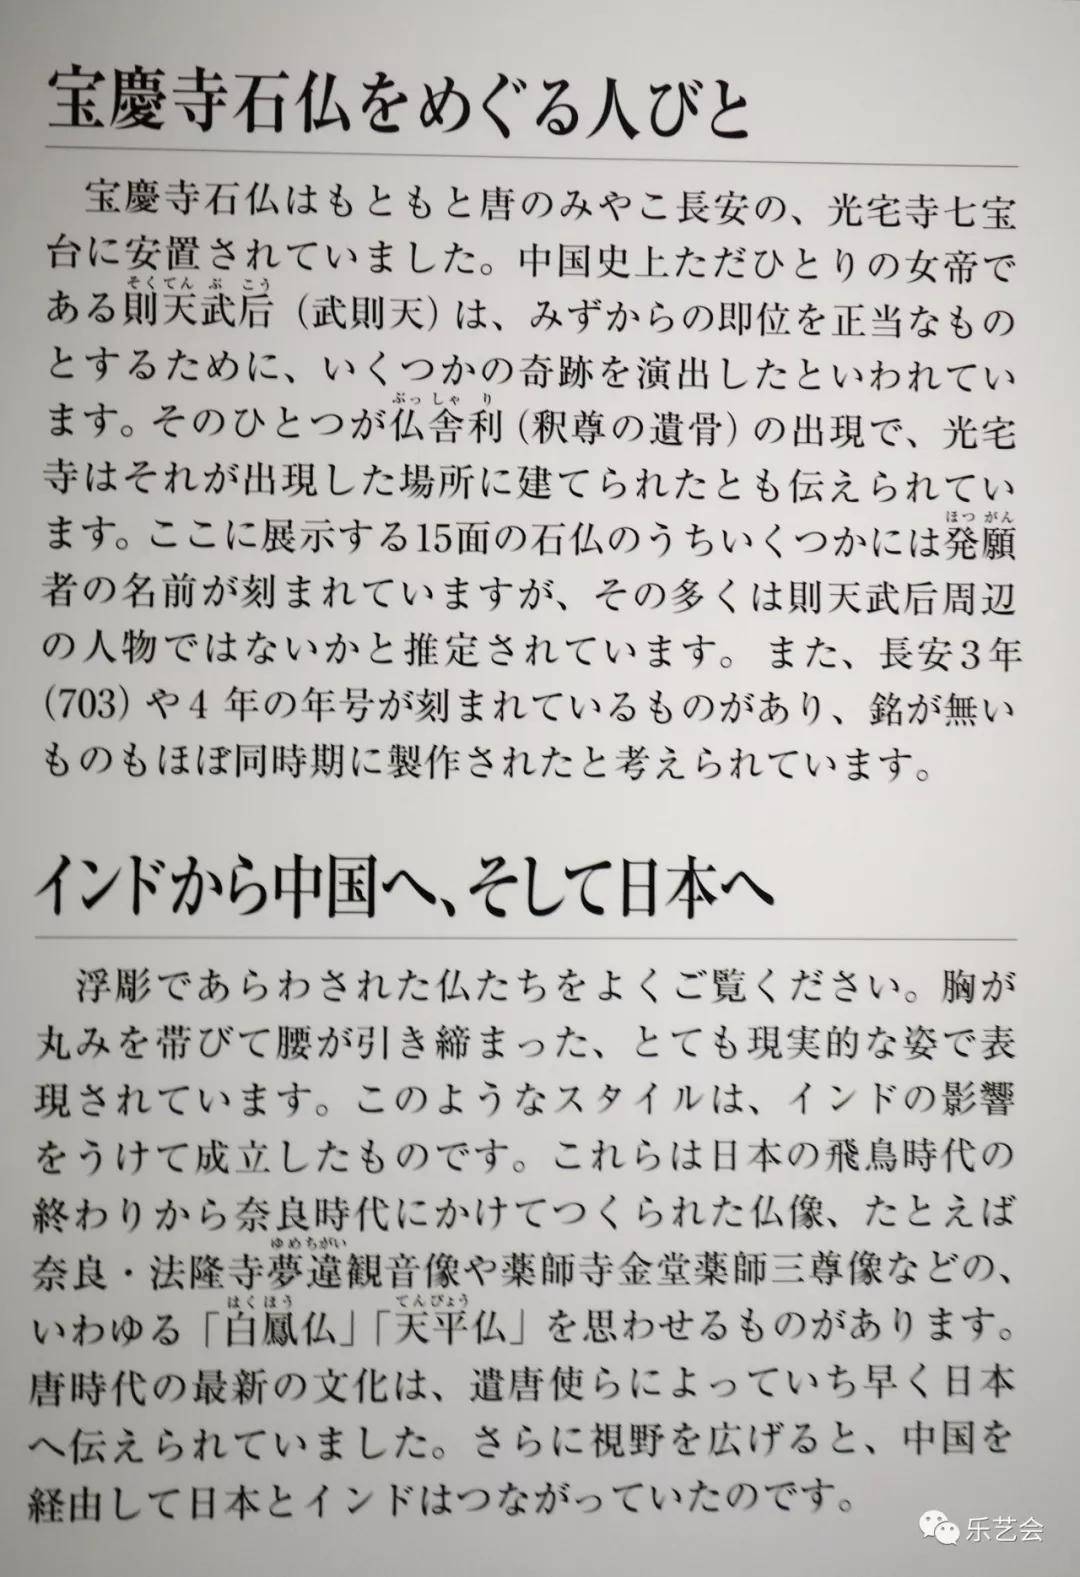 宝慶寺石仏をめぐる人びと
宝慶寺石仏はもともと唐のみやこ長安の、光宅寺七宝
台に安置されていました。中国史上ただひとりの女帝で
そくてん ぶ こう
ある則天武后（武則天）は、みずからの即位を正当なもの
とするために、いくつかの奇跡を演出したといわれてい
ぶっしゃ り
ます。そのひとつが仏舎利（釈尊の遺骨）の出現で、光宅
寺はそれが出現した場所に建てられたとも伝えられてい
ほつ がん
ます。ここに展示する15面の石仏のうちいくつかには発願
者の名前が刻まれていますが、その多くは則天武后周辺
の人物ではないかと推定されています。また、長安3年
(703)や4年の年号が刻まれているものがあり、銘が無い
ものもほぼ同時期に製作されたと考えられています。
インドから中国へ、そして日本へ
浮彫であらわされた仏たちをよくご覧ください。胸が
丸みを帯びて腰が引き締まった、とても現実的な姿で表
現されています。このようなスタイルは、インドの影響
をうけて成立したものです。これらは日本の飛鳥時代の
終わりから奈良時代にかけてつくられた仏像、たとえば
ゆめちがい
奈良・法隆寺夢違観音像や薬師寺金堂薬師三尊像などの、
はくほう てんぴょう
いわゆる「白鳳仏」「天平仏」を思わせるものがあります。
唐時代の最新の文化は、遣唐使らによっていち早く日本
へ伝えられていました。さらに視野を広げると、中国を
経由して日本とインドはつながっていたのです。
乐艺会